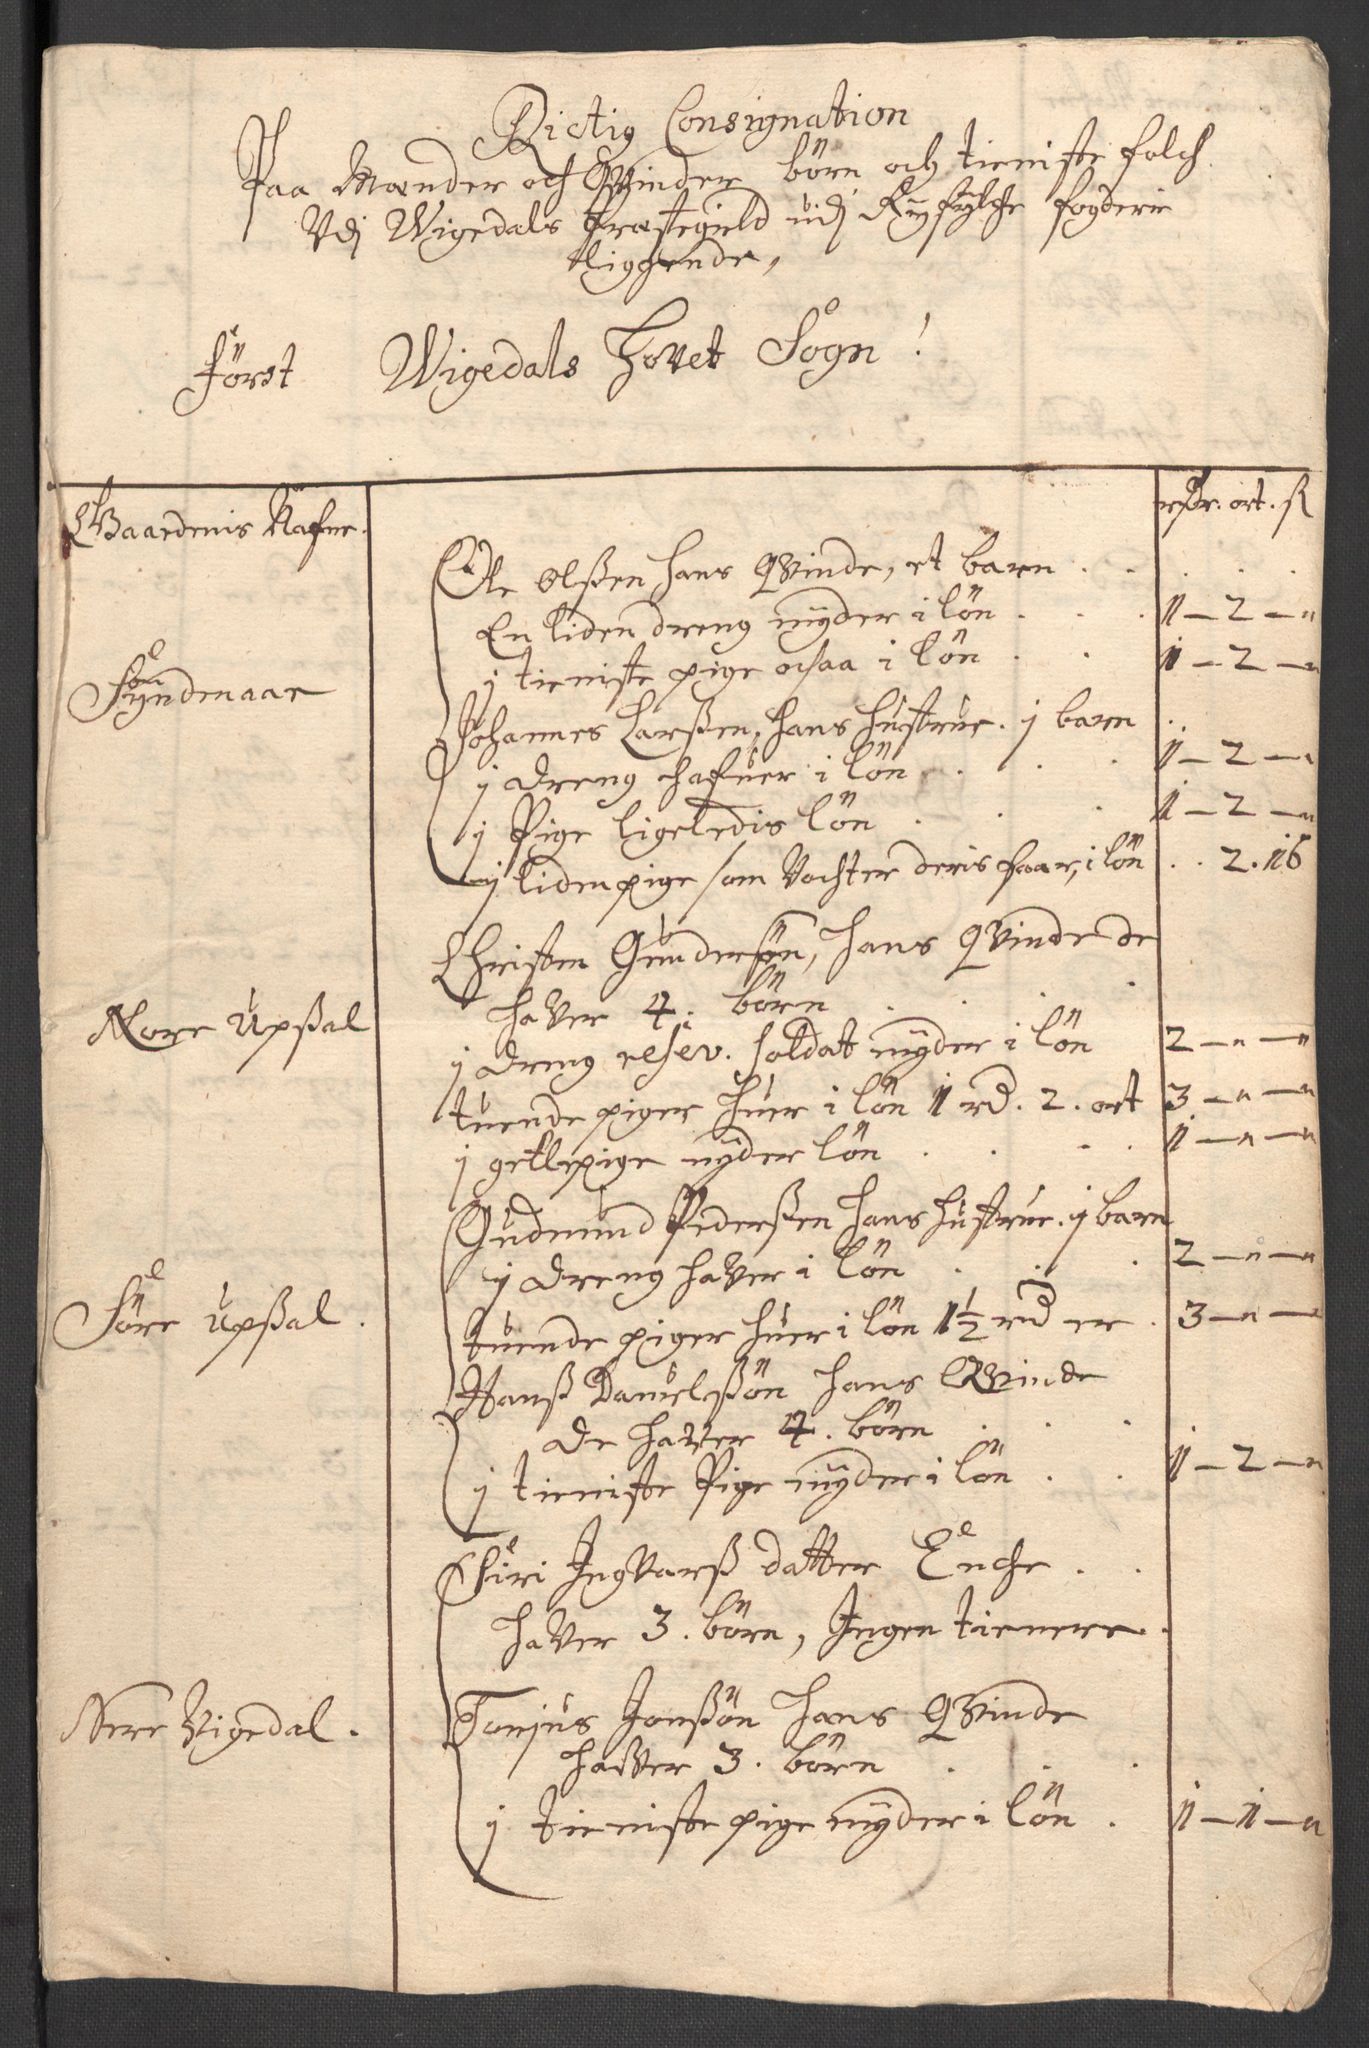 Rictig Consignation
Paa Mænder och Qvinder børn och tieniste folch
Vdj Wigedals Præstegield udj Ryfylche fogderie
liggende,
Först Wigedals Hovet Sogn!
Gaardenis Nafne. rdr. ort. ß
Ole Olßen hans Qvinde, et barn . .
En liden dreng nyder i lön . . 1 – 2 – "
j tieniste pige ochsaa i lön . . 1 – 2 – "
Syndenaar
Johannes Larßen, hans hustrue. j barn .
j dreng hafuer i lön . . . 1 – 2 – "
j Pige ligeledis lön . . . 1 – 2 – "
j liden pige som Vochter deris faar, i lön . . 2. 16
Christen Gundersön, hans Qvinde de
haver 4. börn . . .
Nore Upßal
j dreng reser. soldat nyder i lön 2 – " – "
tuende piger huer i lön 1 rd. 2. ort 3 – " – "
j getlepige nyder lön . . . 1 – " – "
Gudmund Pederßen hans hustrue. j barn
j dreng haver i lön . . . 2 – " – "
Söre Upßal.
tuende piger huer i lön 1½ rd er . 3 – " – "
Hanß Danielßön hans Qvinde
de haver 4. börn . . .
j tieniste Pige nyder i lön . . 1 – 2 – "
Siri Ingvarß datter Enche . .
haver 3. börn, Ingen tienere.
Nere Vigedal.
Tonjus Jonßön hans Qvinde
haver 3. börn . . .
j tieniste pige nyder i lön . 1 – 1 – "